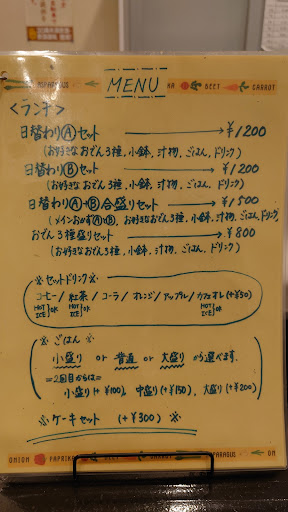 MENU
BEET
CARROT
<ランチ>
日替わりⒶセット → ¥1200
(お好きなおでん3種, 小鉢, 汁物, ごはん, ドリンク)
日替わりⒷセット → ¥1200
(お好きなおでん3種, 小鉢, 汁物, ごはん, ドリンク)
日替わりⒶ+Ⓑ合盛りセット → ¥1500
(メインおかずⒶ+Ⓑ, お好きなおでん3種, 小鉢, 汁物, ごはん, ドリンク)
おでん3種盛りセット → ¥800
(お好きなおでん3種, 小鉢, 汁物, ごはん, ドリンク)
※セットドリンク※
コーヒー / 紅茶 / コーラ / オレンジ / アップル / カフェオレ (+¥50)
HOT ICE }OK HOT ICE }OK HOT ICE }OK
※ごはん※
小盛り or 普通 or 大盛り から選べます。
=2回目からは=
小盛り(+¥100), 中盛り(+¥150), 大盛り(+¥200)
※ケーキセット (+¥300)※
ONION PAPRIKA BEET CARROT ASPARAGUS ON